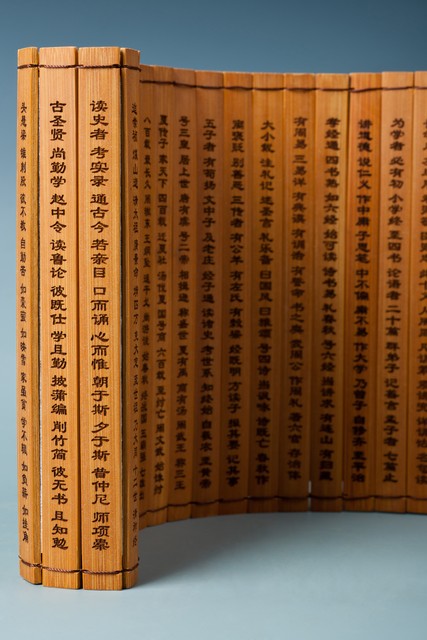 为学者 必有初 小学终 至四书 论语者 二十篇 群弟子 记善言 孟子者 七篇止
讲道德 说仁义 作中庸 子思笔 中不偏 庸不易 作大学 乃曾子 自修齐 至平治
孝经通 四书熟 如六经 始可读 诗书易 礼春秋 号六经 当讲求 有连山 有归藏
有周易 三易详 有典谟 有训诰 有誓命 书之奥 我周公 作周礼 著六官 存治体
大小戴 注礼记 述圣言 礼乐备 曰国风 曰雅颂 号四诗 当讽咏 诗既亡 春秋作
寓褒贬 别善恶 三传者 有公羊 有左氏 有穀梁 经既明 方读子 撮其要 记其事
五子者 有荀扬 文中子 及老庄 经子通 读诸史 考世系 知终始 自羲农 至黄帝
号三皇 居上世 唐有虞 号二帝 相揖逊 称盛世 夏有禹 商有汤 周武王 称三王
夏传子 家天下 四百载 迁夏社 汤伐夏 国号商 六百载 至纣亡 周文武 始诛纣
八百载 最长久 周辙东 王纲坠 逞干戈 尚游说 始春秋 终战国 五霸强 七雄出
读史者 考实录 通古今 若亲目 口而诵 心而惟 朝于斯 夕于斯 昔仲尼 师项橐
古圣贤 尚勤学 赵中令 读鲁论 彼既仕 学且勤 披蒲编 削竹简 彼无书 且知勉
头悬梁 锥刺股 彼不教 自勤苦 如囊萤 如映雪 家虽贫 学不辍 如负薪 如挂角